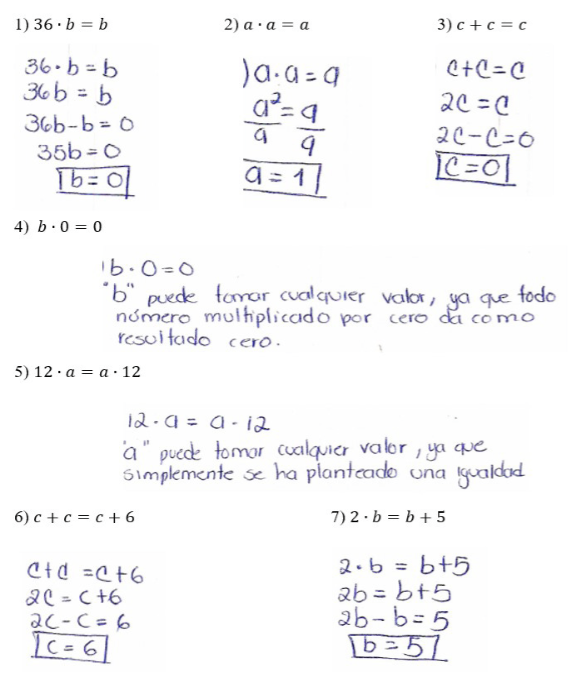 1) 36 · b = b
2) a · a = a
3) c + c = c
36·b = b
36b = b
36b-b = 0
35b = 0
b = 0
)a·a = a
a² = a
a a
a = 1
c+c=c
2c = c
2c-c=0
c=0
4) b · 0 = 0
b · 0 = 0
"b" puede tomar cualquier valor, ya que todo
número multiplicado por cero da como
resultado cero.
5) 12 · a = a · 12
12 · a = a · 12
"a" puede tomar cualquier valor, ya que
simplemente se ha planteado una igualdad
6) c + c = c + 6
7) 2 · b = b + 5
c+c = c+6
2c = c+6
2c-c = 6
c = 6
2·b = b+5
2b = b+5
2b-b = 5
b = 5